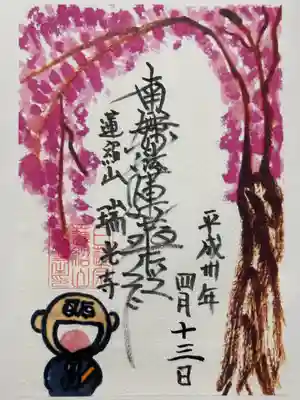 平成卅年
四月十三日
南無妙法蓮華経
瑞光寺